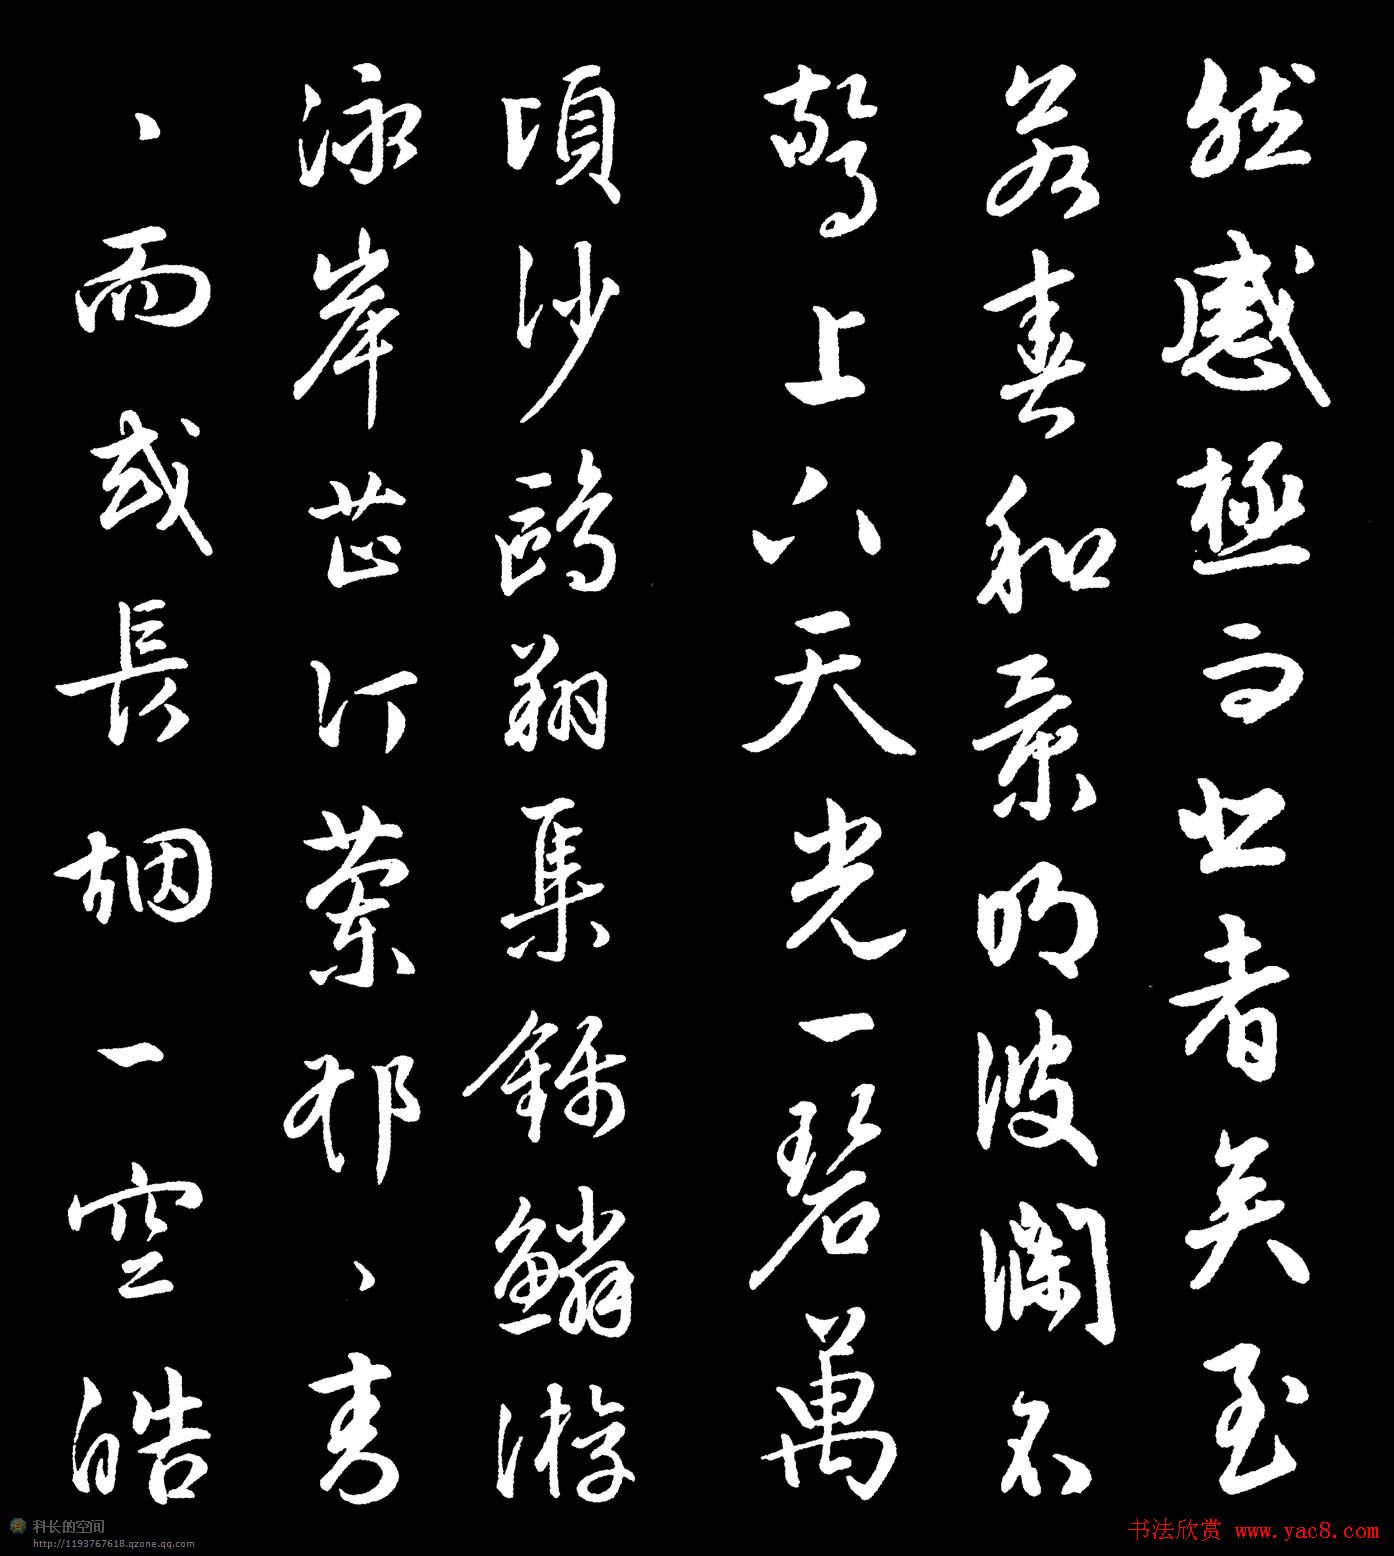 然感極而悲者矣至
若春和景明波瀾不
驚上下天光一碧萬
頃沙鷗翔集錦鱗游
泳岸芷汀蘭郁、青
、而或長烟一空皓
科长的空间
http://1193767618.qzone.qq.com
书法欣赏 www.yac8.com